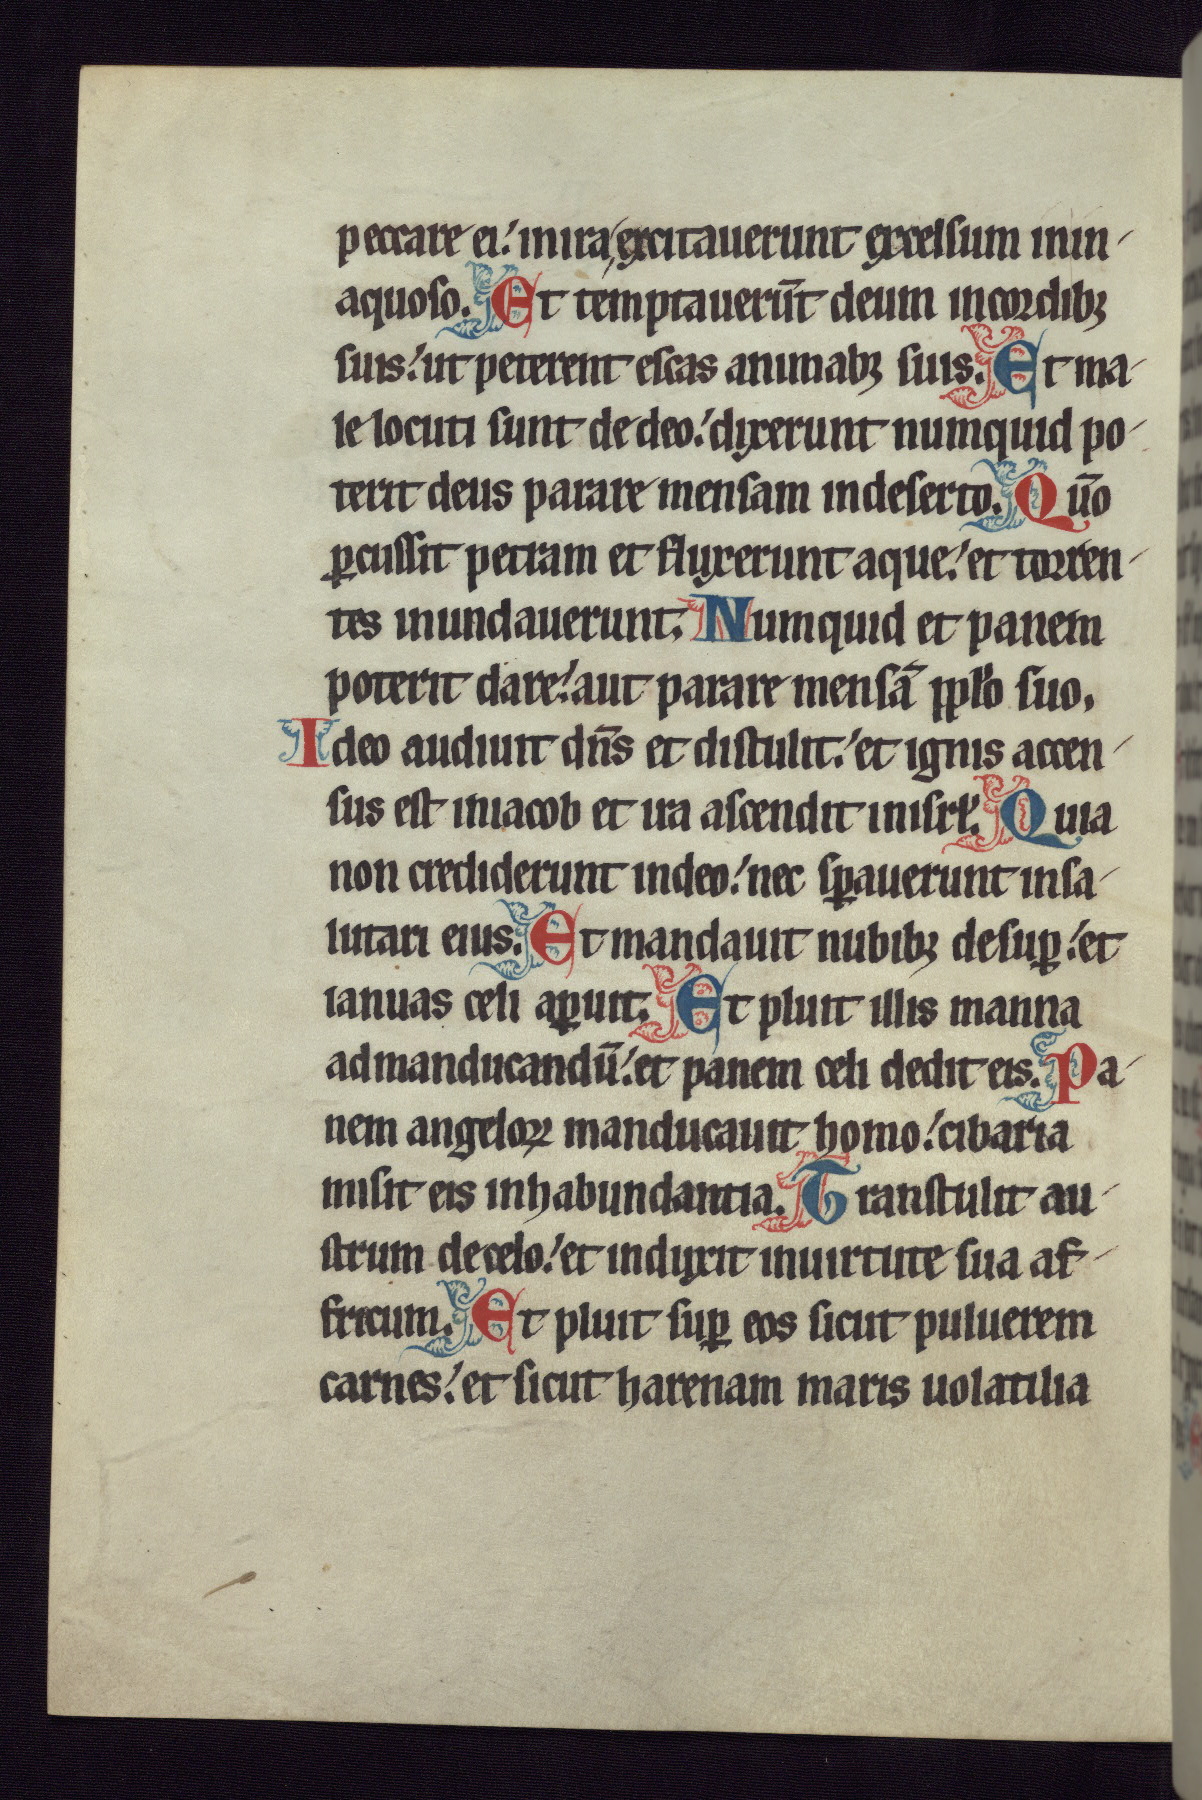 peccare ei: in ira excitauerunt excelsum in in-
aquoso. Et temptauerūt deum in cordibꝫ
suis: ut peterent escas animabꝫ suis. Et ma-
le locuti sunt de deo: dixerunt numquid po-
terit deus parare mensam in deserto. Qūo
ꝑcussit petram et fluxerunt aque: et torren-
tes inundauerunt. Numquid et panem
poterit dare: aut parare mensā pplo suo.
Ideo audiuit dn̄s et distulit: et ignis accen-
sus est in iacob et ira ascendit in isrl. Quia
non crediderunt in deo: nec sꝑauerunt in sa-
lutari eius. Et mandauit nubibꝫ desuꝑ: et
ianuas celi aꝑuit. Et pluit illis manna
ad manducandū: et panem celi dedit eis. Pa-
nem angeloꝝ manducauit homo: cibaria
misit eis in habundantia. Transtulit au-
strum de celo: et induxit in uirtute sua af-
fricum. Et pluit suꝑ eos sicut puluerem
carnes: et sicut harenam maris uolatilia